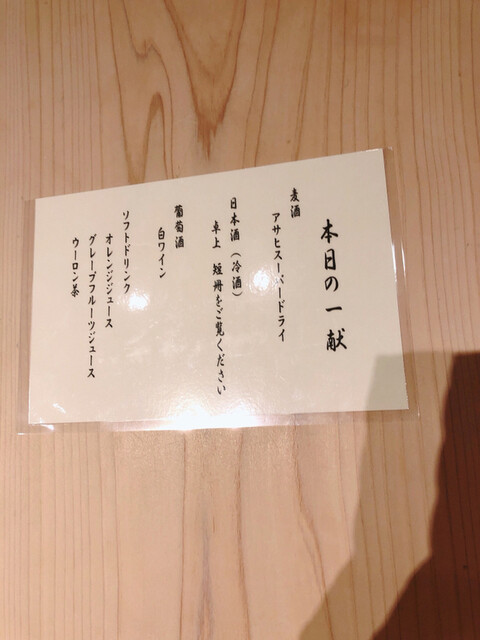 本日の一献
麦酒
アサヒスーパードライ
日本酒（冷酒）
卓上 短冊をご覧ください
葡萄酒
白ワイン
ソフトドリンク
オレンジジュース
グレープフルーツジュース
ウーロン茶